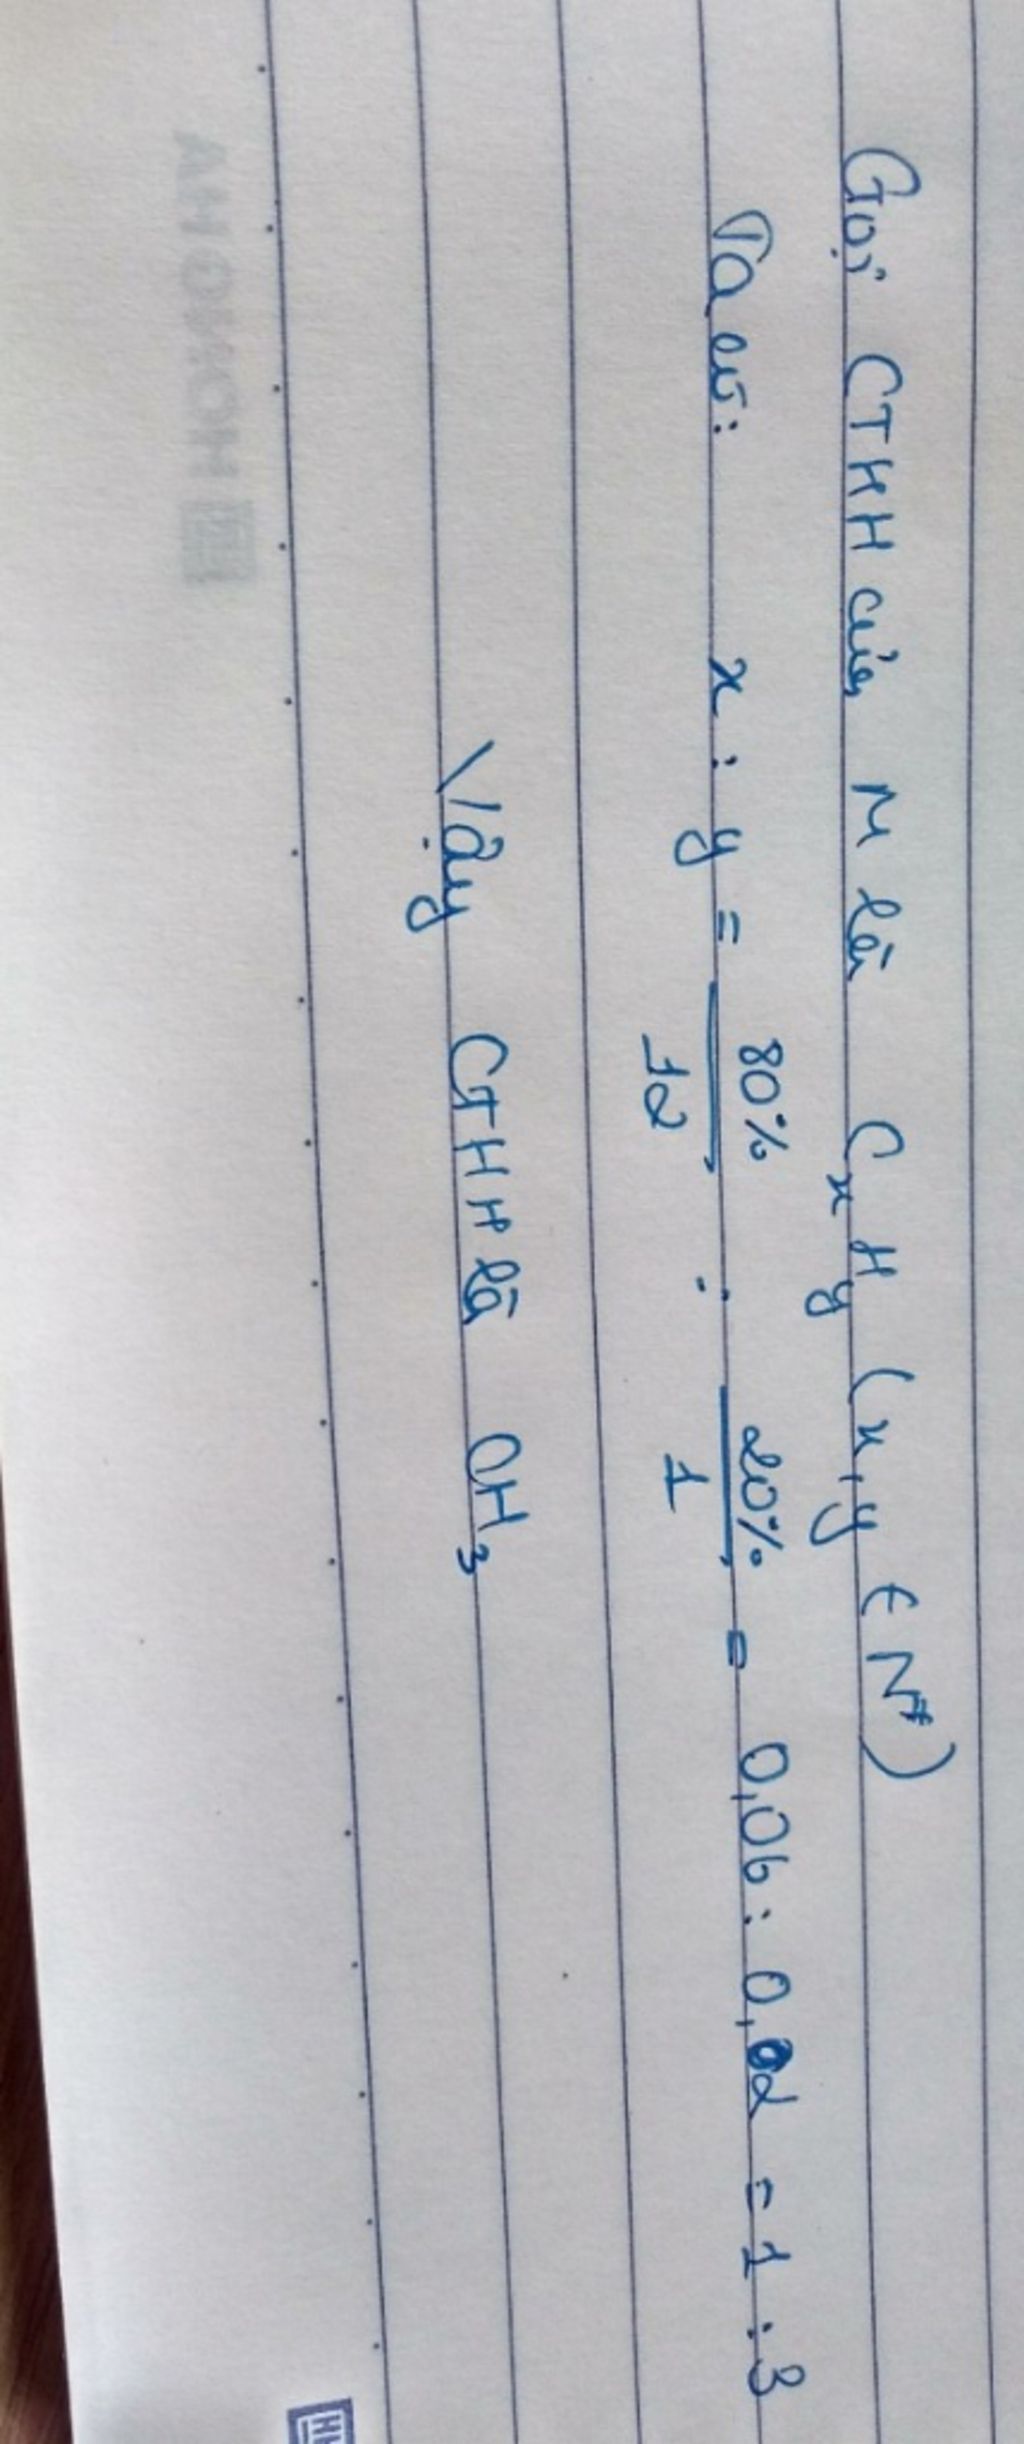 Gọi CTHH của M là CxHy (x,y ∈ N*)
Ta có: x : y = 80%/12 : 20%/1 = 0,06 : 0,2 = 1 : 3
Vậy CTHH là CH₃
HONG HA